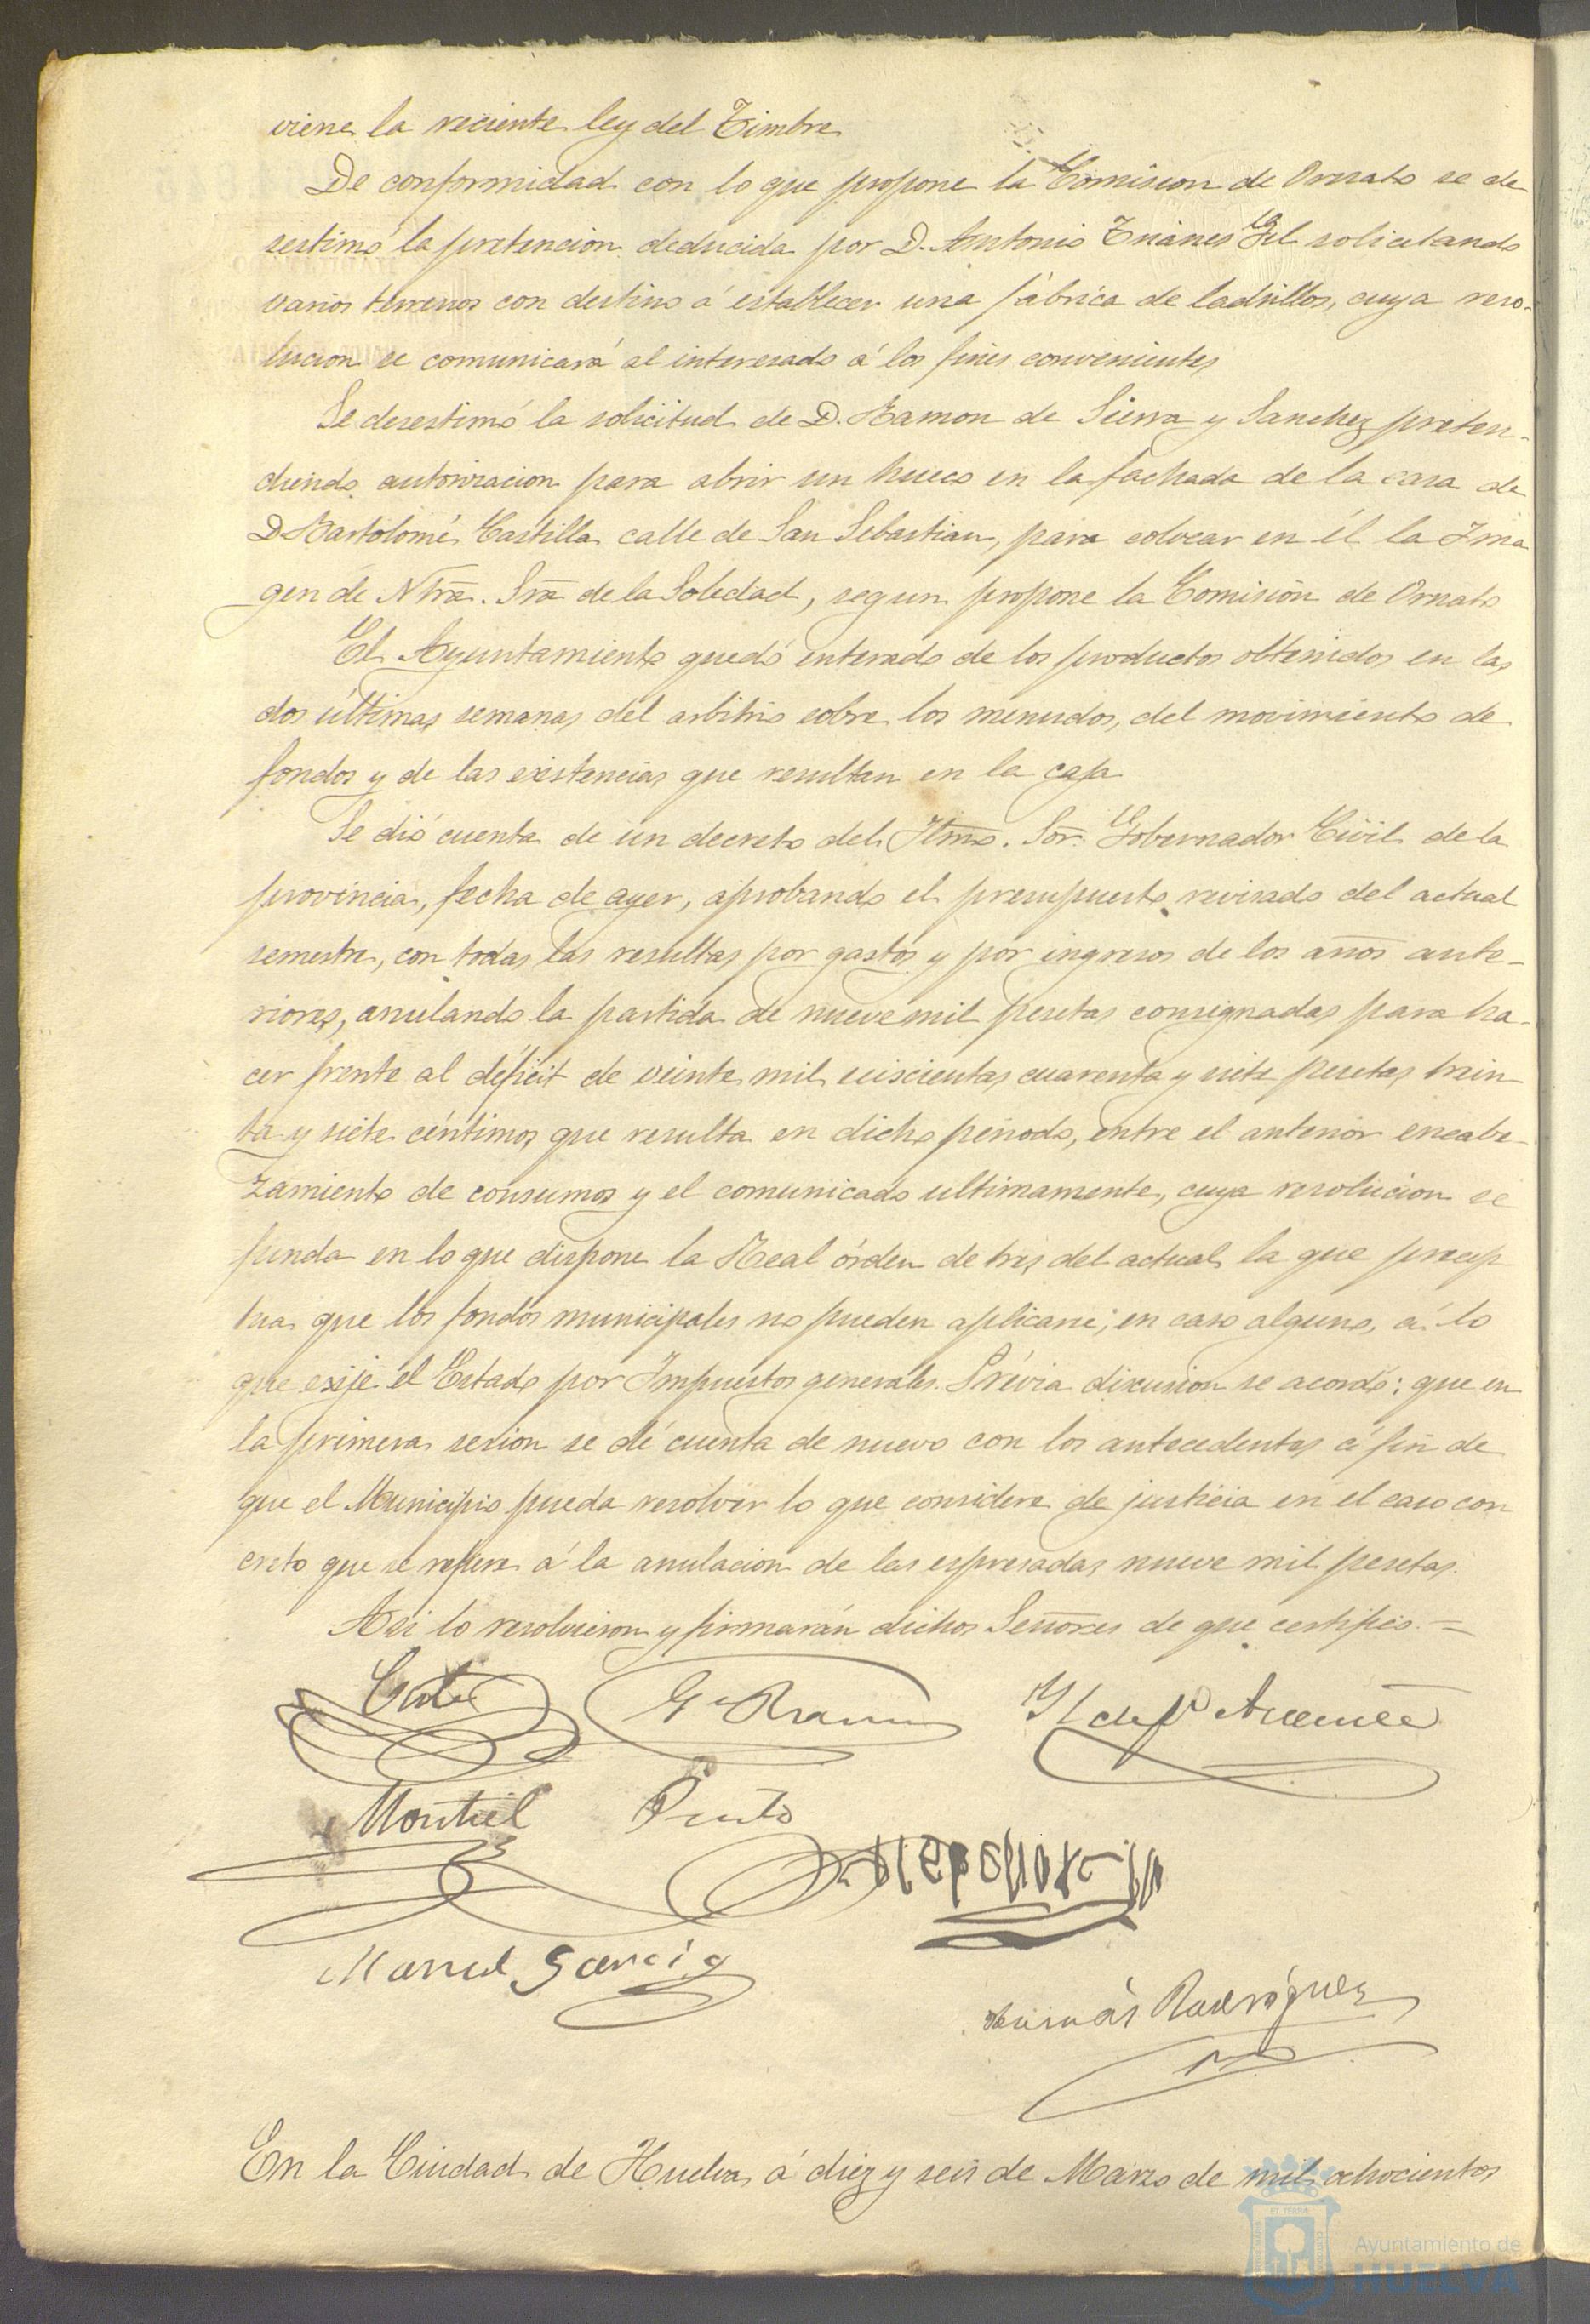 viene la reciente ley del Timbre
De conformidad con lo que propone la Comision de Ornato se de
sestimó la pretencion deducida por D. Antonio Gil solicitando
varios terrenos con destino á establecer una fábrica de ladrillos, cuya reso-
lucion se comunicará al interesado á los fines convenientes
Se desestimó la solicitud de D. Ramon de Sierra y Sanchez, preten-
diendo autorizacion para abrir un hueco en la fachada de la casa de
D Bartolomé Castilla calle de San Sebastian, para colocar en él la Ima
gen de Ntra. Sra de la Soledad, segun propone la Comision de Ornato
El Ayuntamiento quedó enterado de los productos obtenidos en las
dos últimas semanas del arbitrio sobre los menudos, del movimiento de
fondos y de las existencias que resultan en la caja
Se dió cuenta de un decreto del Iltmo. Sor. Gobernador Civil de la
provincia, fecha de ayer, aprobando el presupuesto revisado del actual
semestre, con todas las resultas por gastos y por ingresos de los años ante-
riores, anulando la partida de nueve mil pesetas consignadas para ha-
cer frente al déficit de veinte mil seiscientas cuarenta y siete pesetas trein
ta y siete céntimos que resulta en dicho periodo, entre el anterior encabe-
zamiento de consumos y el comunicado ultimamente, cuya resolucion se
funda en lo que dispone la Real órden de tres del actual la que precep
tua que los fondos municipales no pueden aplicarse, en caso alguno, á lo
que exije el Estado por Impuestos generales. Prévia discusion se acordó: que en
la primera sesion se dé cuenta de nuevo con los antecedentes á fin de
que el Municipio pueda resolver lo que considere de justicia en el caso con
creto que se refiere á la anulacion de las espresadas nueve mil pesetas.
Asi lo resolvieron y firmarán dichos Señores de que certifico. =
Montiel Pinto
Manuel Garcia
Rodriguez
En la Ciudad de Huelva á diez y seis de Marzo de mil ochocientos
Ayuntamiento de
HUELVA